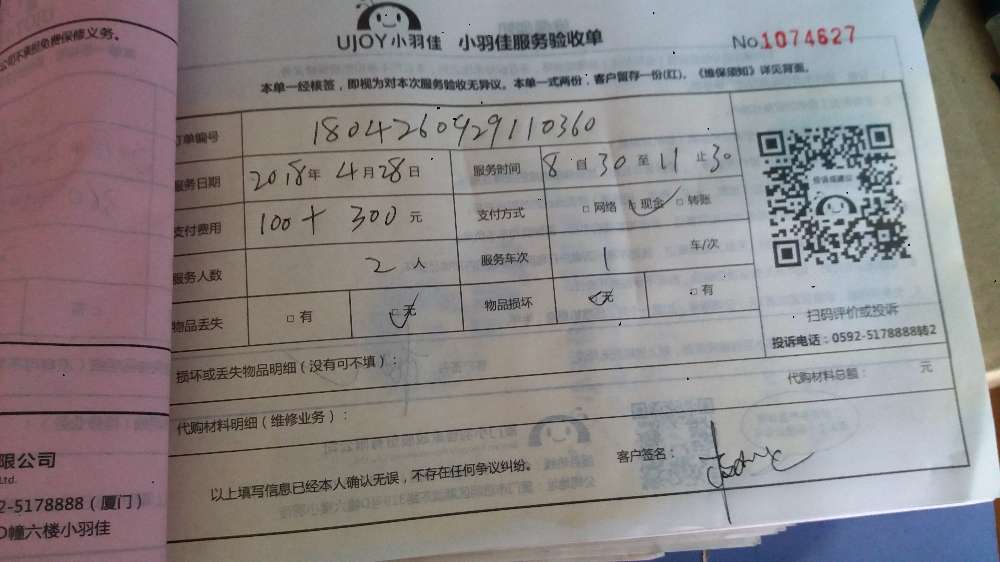 公司不承担免费保修义务。
UJOY小羽佳 小羽佳服务验收单
No.1074627
本单一经核签，即视为对本次服务验收无异议。本单一式两份：客户留存一份(红)。《维保须知》详见背面。
订单编号 1804260929110360
服务日期 2018年4月28日 服务时间 8自30至11止30
投诉或建议
支付费用 100+300元 支付方式 □网络 ☑现金 □转账
服务人数 2人 服务车次 1 车/次
物品丢失 □有 ☑无 物品损坏 ☑无 □有
扫码评价或投诉
投诉电话：0592-5178888转2
损坏或丢失物品明细（没有可不填）：
代购材料总额： 元
代购材料明细（维修业务）：
客户签名：
以上填写信息已经本人确认无误，不存在任何争议纠纷。
限公司
Ltd.
2-5178888（厦门）
D幢六楼小羽佳